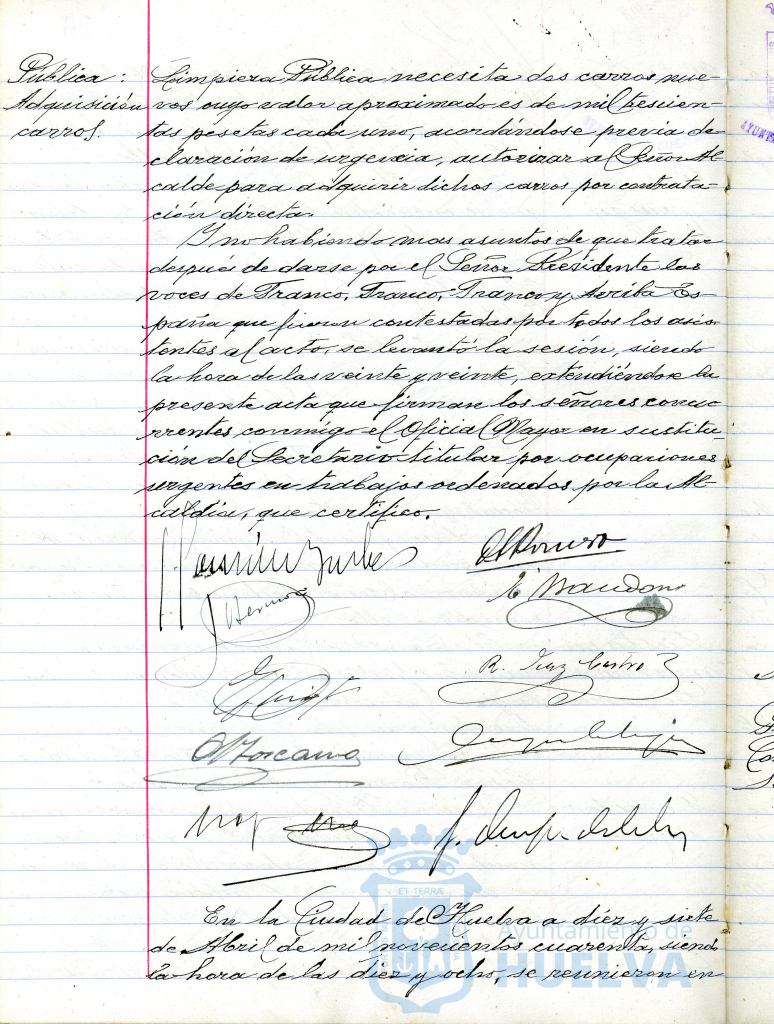 Pública:
Adquisición
carros.
Limpieza Pública necesita dos carros nue-
vos cuyo valor aproximado es de mil trescien-
tas pesetas cada uno, acordándose previa de-
claración de urgencia, autorizar al Señor Al-
calde para adquirir dichos carros por contrata-
ción directa.
Y no habiendo mas asuntos de que tratar
después de darse por el Señor Presidente las
voces de Franco, Franco, Franco y Arriba Es-
paña que fueron contestadas por todos los asis-
tentes al acto, se levantó la sesión, siendo
la hora de las veinte y veinte, extendiéndose la
presente acta que firman los señores concu-
rrentes conmigo el Oficial Mayor en sustitu-
ción del Secretario titular por ocupaciones
urgentes en trabajos ordenados por la Al-
caldia, que certifico.
R. Diaz Castro
En la Ciudad de Huelva a diez y siete
de Abril de mil novecientos cuarenta, siendo
la hora de las diez y ocho, se reunieron en
ET TERRÆ
Ayuntamiento de
HUELVA